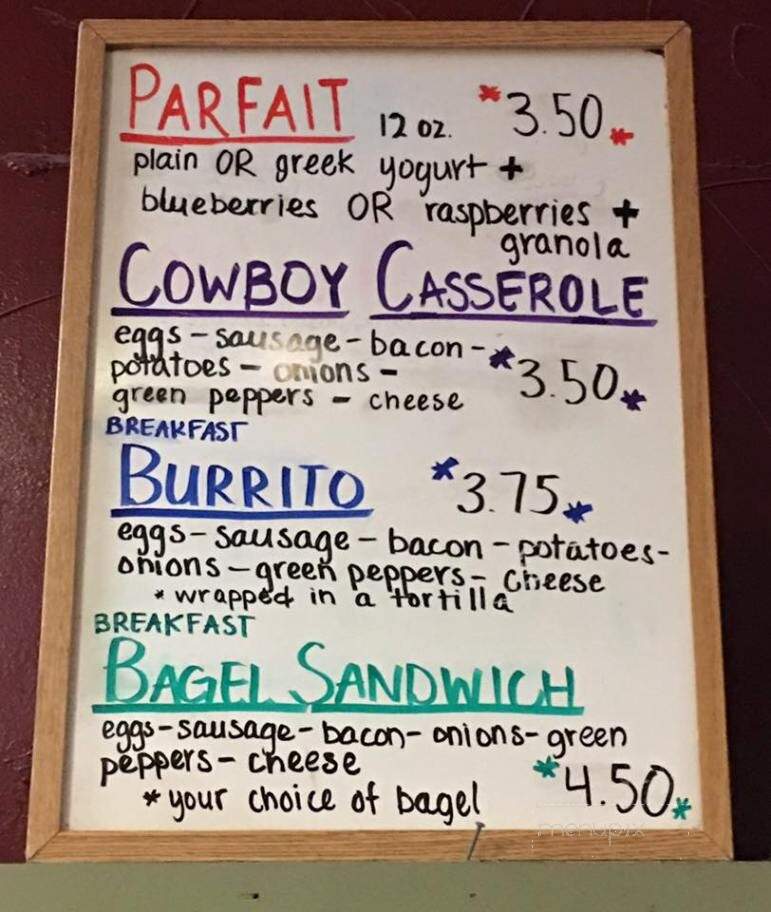 PARFAIT 12 oz. *3.50*
plain OR greek yogurt +
blueberries OR raspberries +
granola
COWBOY CASSEROLE
eggs - sausage - bacon -
potatoes - onions - *3.50*
green peppers - cheese
BREAKFAST
BURRITO *3.75*
eggs - sausage - bacon - potatoes -
onions - green peppers - cheese
* wrapped in a tortilla
BREAKFAST
BAGEL SANDWICH
eggs - sausage - bacon - onions - green
peppers - cheese
*4.50*
* your choice of bagel
menupix